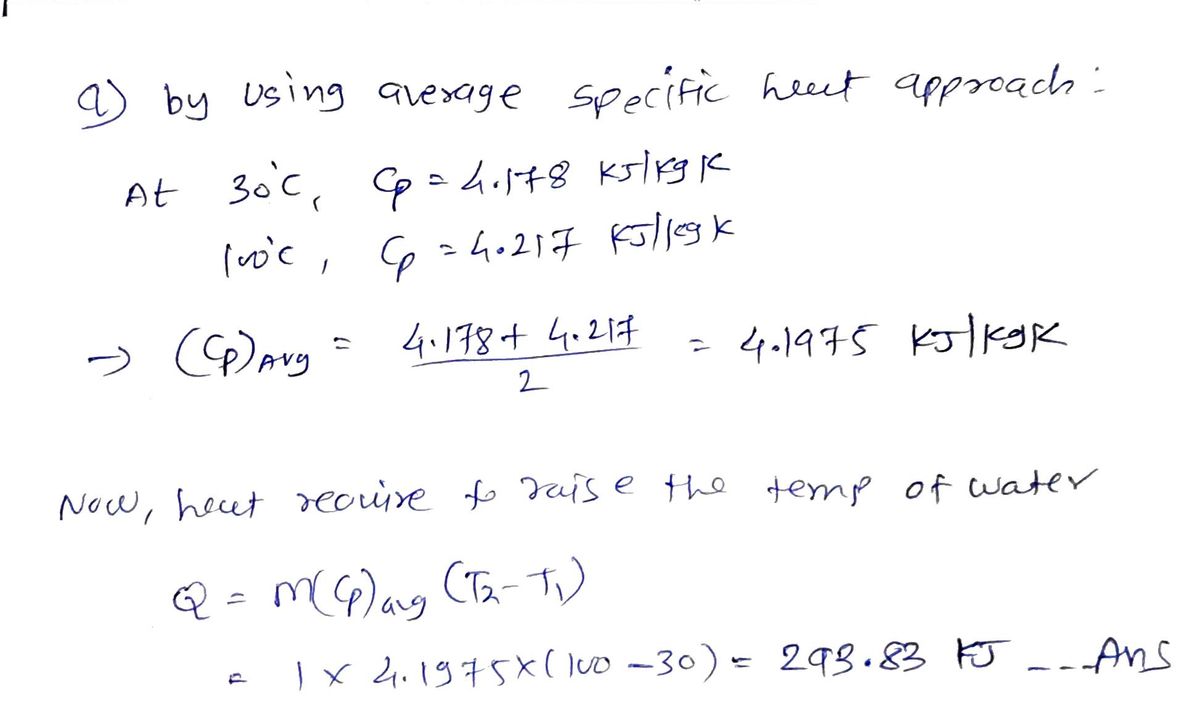 a) by using average specific heat approach:
At 30°C, Cp = 4.178 KJ/kg K
100°C, Cp = 4.217 KJ/kg K
→ (Cp)Avg = 4.178 + 4.217 / 2 = 4.1975 KJ/kgK
Now, heat require to raise the temp of water
Q = m(Cp)avg (T2-T1)
= 1 × 4.1975×(100-30) = 293.83 KJ ---Ans